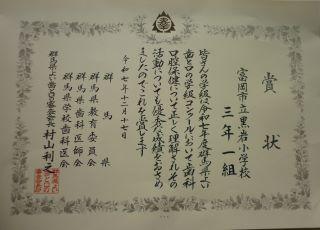 賞状
富岡市立黒岩小学校
三年一組
皆さんの学級は令和七年度群馬県よい
歯と口の学級コンクールにおいて歯科
口腔保健について正しく理解されその
活動についても優秀な成績をおさめ
ましたのでこれを賞します
令和七年十二月十七日
群馬県
群馬県教育委員会
群馬県歯科医師会
群馬県学校歯科医会
村山利之